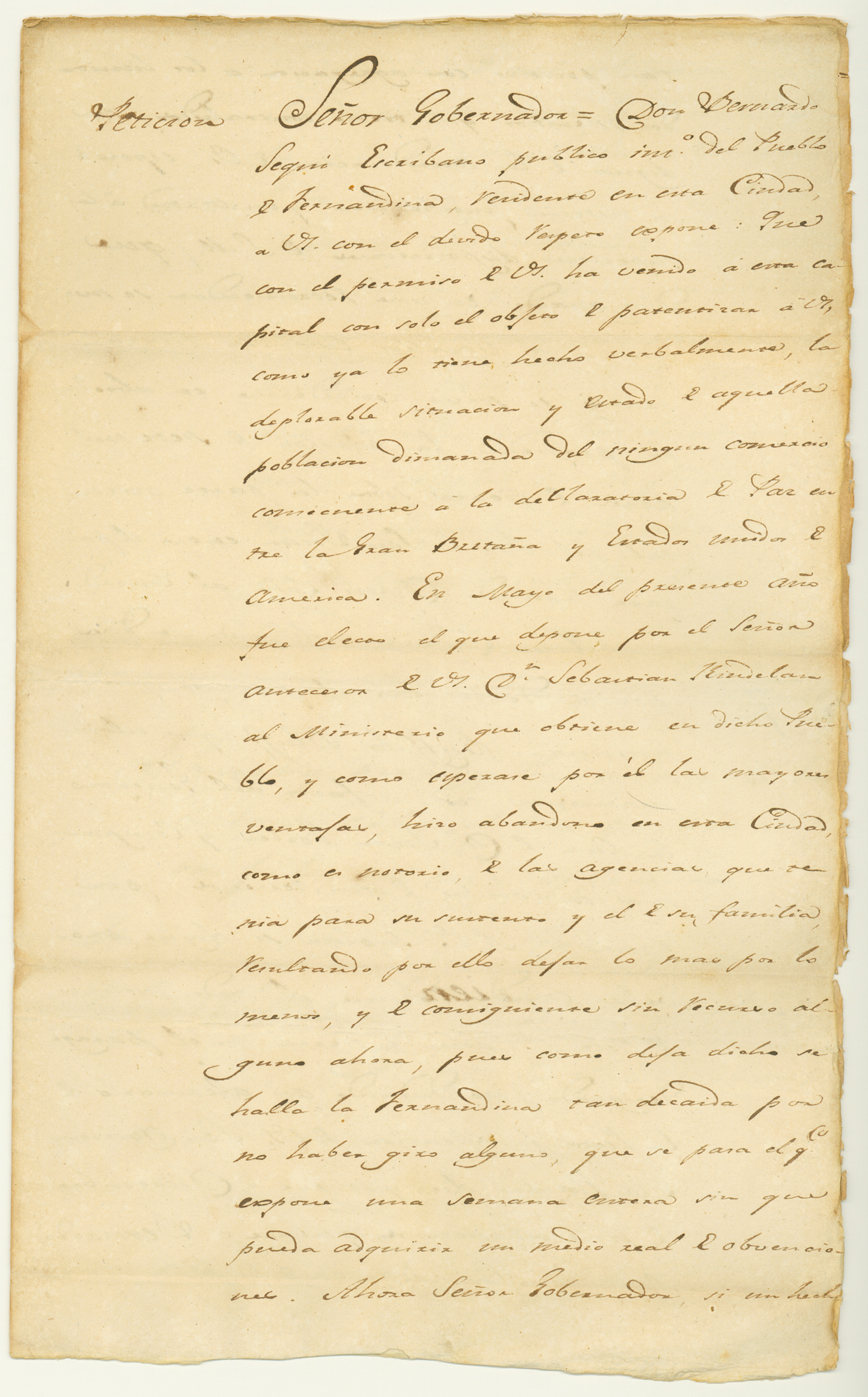 Peticion Señor Gobernador = Don Bernardo
Segui Escribano publico int.º del Pueblo
de Fernandina, recidente en esta Ciudad,
a VS. con el devido respeto expone: Que
con el permiso de VS. ha venido á esta ca-
pital con solo el objeto de patentizar á VS,
como ya lo tiene hecho verbalmente, la
deplorable situacion y estado de aquella
poblacion dimanada del ningun comercio
consecuente á la declaratoria de Paz en
tre la Gran Bretaña y Estados unidos de
America. En Mayo del presente año
fue electo el que depone, por el Señor
antecesor de VS. Dn Sebastian Kindelan
al Ministerio que obtiene en dicho Pue-
blo, y como esperase por él las mayores
ventajas, hizo abandono en esta Ciudad,
como es notorio, de las agencias que te-
nia para su sustento y el de su familia,
resultando por ello dejar lo mas por lo
menos, y de consiguiente sin recurso al-
guno ahora, pues como deja dicho se
halla la Fernandina tan decaida por
no haber giro alguno, que se pasa el q.e
expone una semana entera sin que
pueda adquirir un medio real de obvencio-
nes. Ahora Señor Gobernador, si un hech